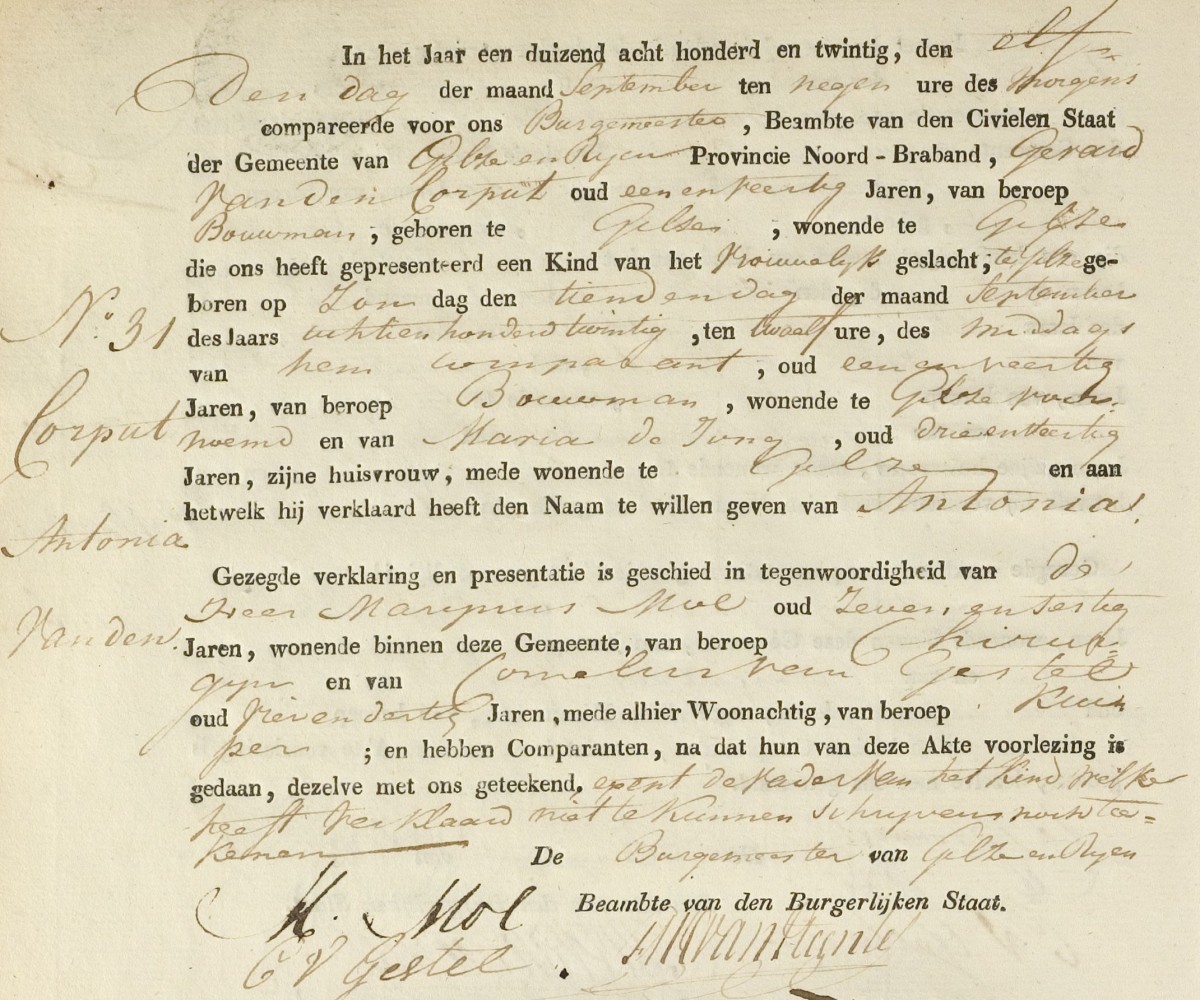 In het Jaar een duizend acht honderd en twintig, den elf=
Den dag der maand September ten negen ure des morgens
compareerde voor ons Burgemeester, Beambte van den Civielen Staat
der Gemeente van Gilze en Ryen Provincie Noord-Braband, Gerard
Van den Corput oud een en veertig Jaren, van beroep
Bouwman, geboren te Gilze, wonende te Gilze
die ons heeft gepresenteerd een Kind van het Vrouwelyk geslacht, te Gilze ge-
N.o 31
boren op Zon dag den tienden dag der maand September
des Jaars achtien honderd twintig, ten twaalf ure, des middags
van hem comparant, oud een en veertig
Jaren, van beroep Bouwman, wonende te Gilze voor-
Corput
noemd en van Maria de Jong, oud drie en veertig
Jaren, zijne huisvrouw, mede wonende te Gilze en aan
hetwelk hij verklaard heeft den Naam te willen geven van Antonia.
Antonia
Gezegde verklaring en presentatie is geschied in tegenwoordigheid van de
Heer Marynus Mol oud Zeven en dertig
Van den
Jaren, wonende binnen deze Gemeente, van beroep Chirur=
gyn en van Cornelis van Gestel
oud vier en dertig Jaren, mede alhier Woonachtig, van beroep Kui
per ; en hebben Comparanten, na dat hun van deze Akte voorlezing is
gedaan, dezelve met ons geteekend. exent de vader van het Kind, welke
heeft verklaard niet te kunnen schryven noch tee=
kenen
De Burgemeester van Gilze en Ryen
Beambte van den Burgerlijken Staat.
M. Mol
C V Gestel